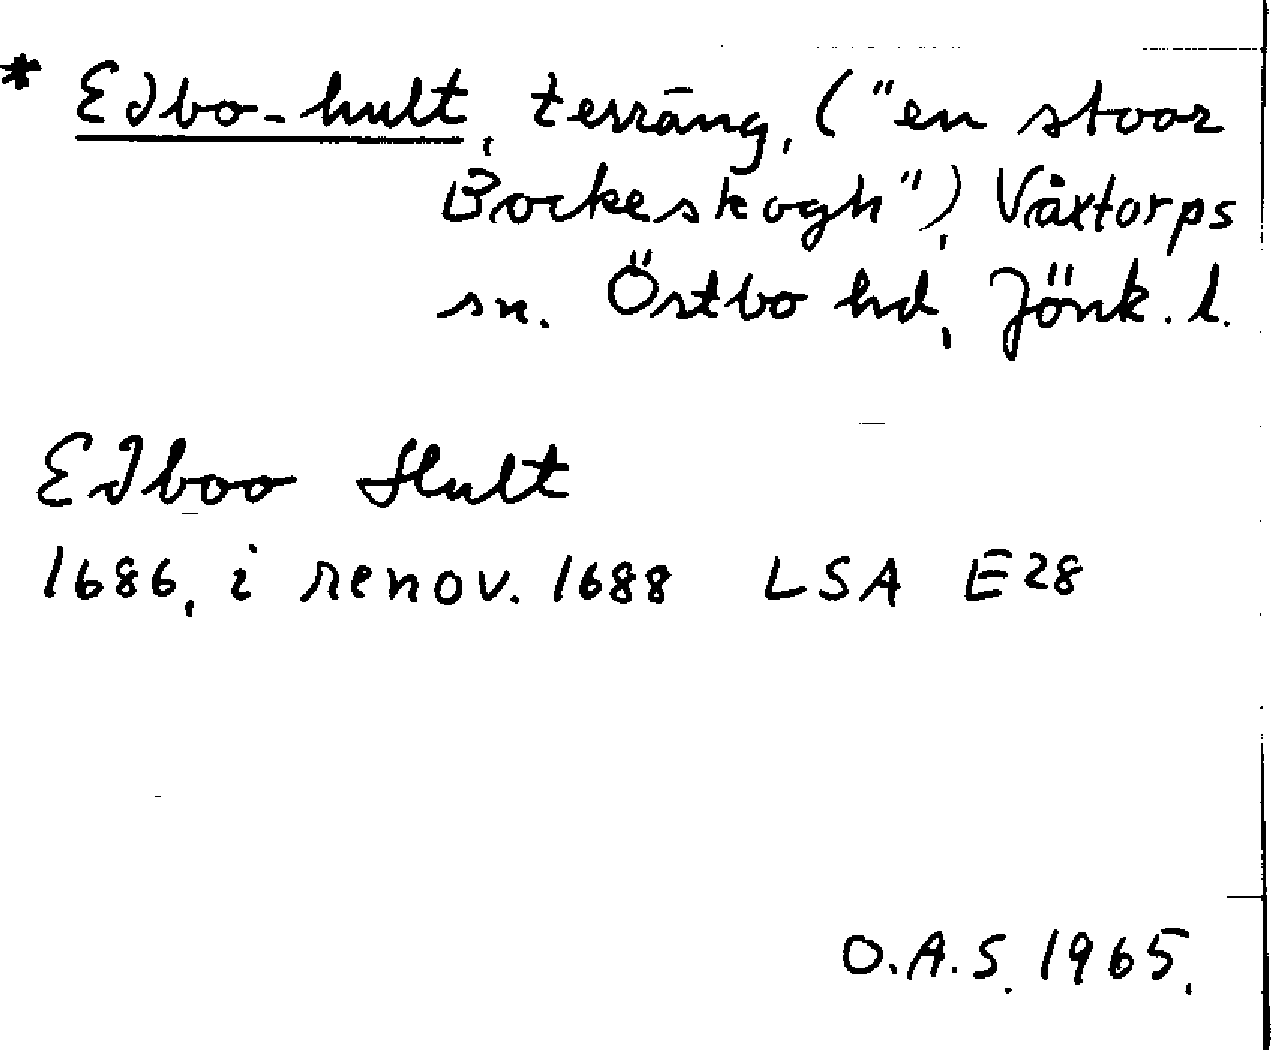 * Edbo-hult, terräng, ("en stoor
Bockeskogh"), Våxtorps
sn. Östbo hd, Jönk. l.
Edboo Hult
1686, i renov. 1688 LSA E28
O.A.S. 1965.